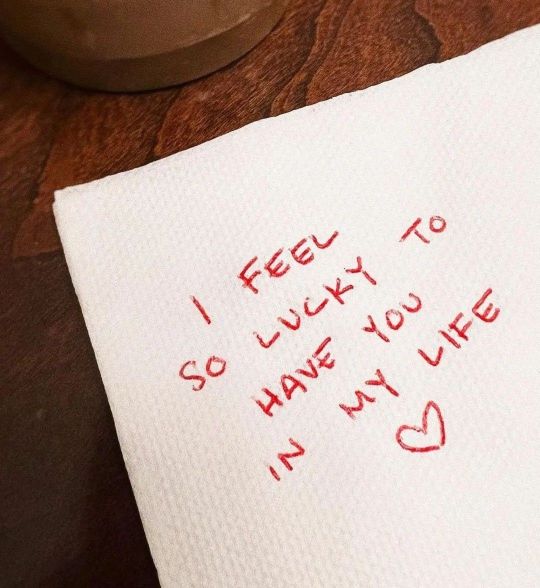 I FEEL
SO LUCKY TO
HAVE YOU
IN MY LIFE